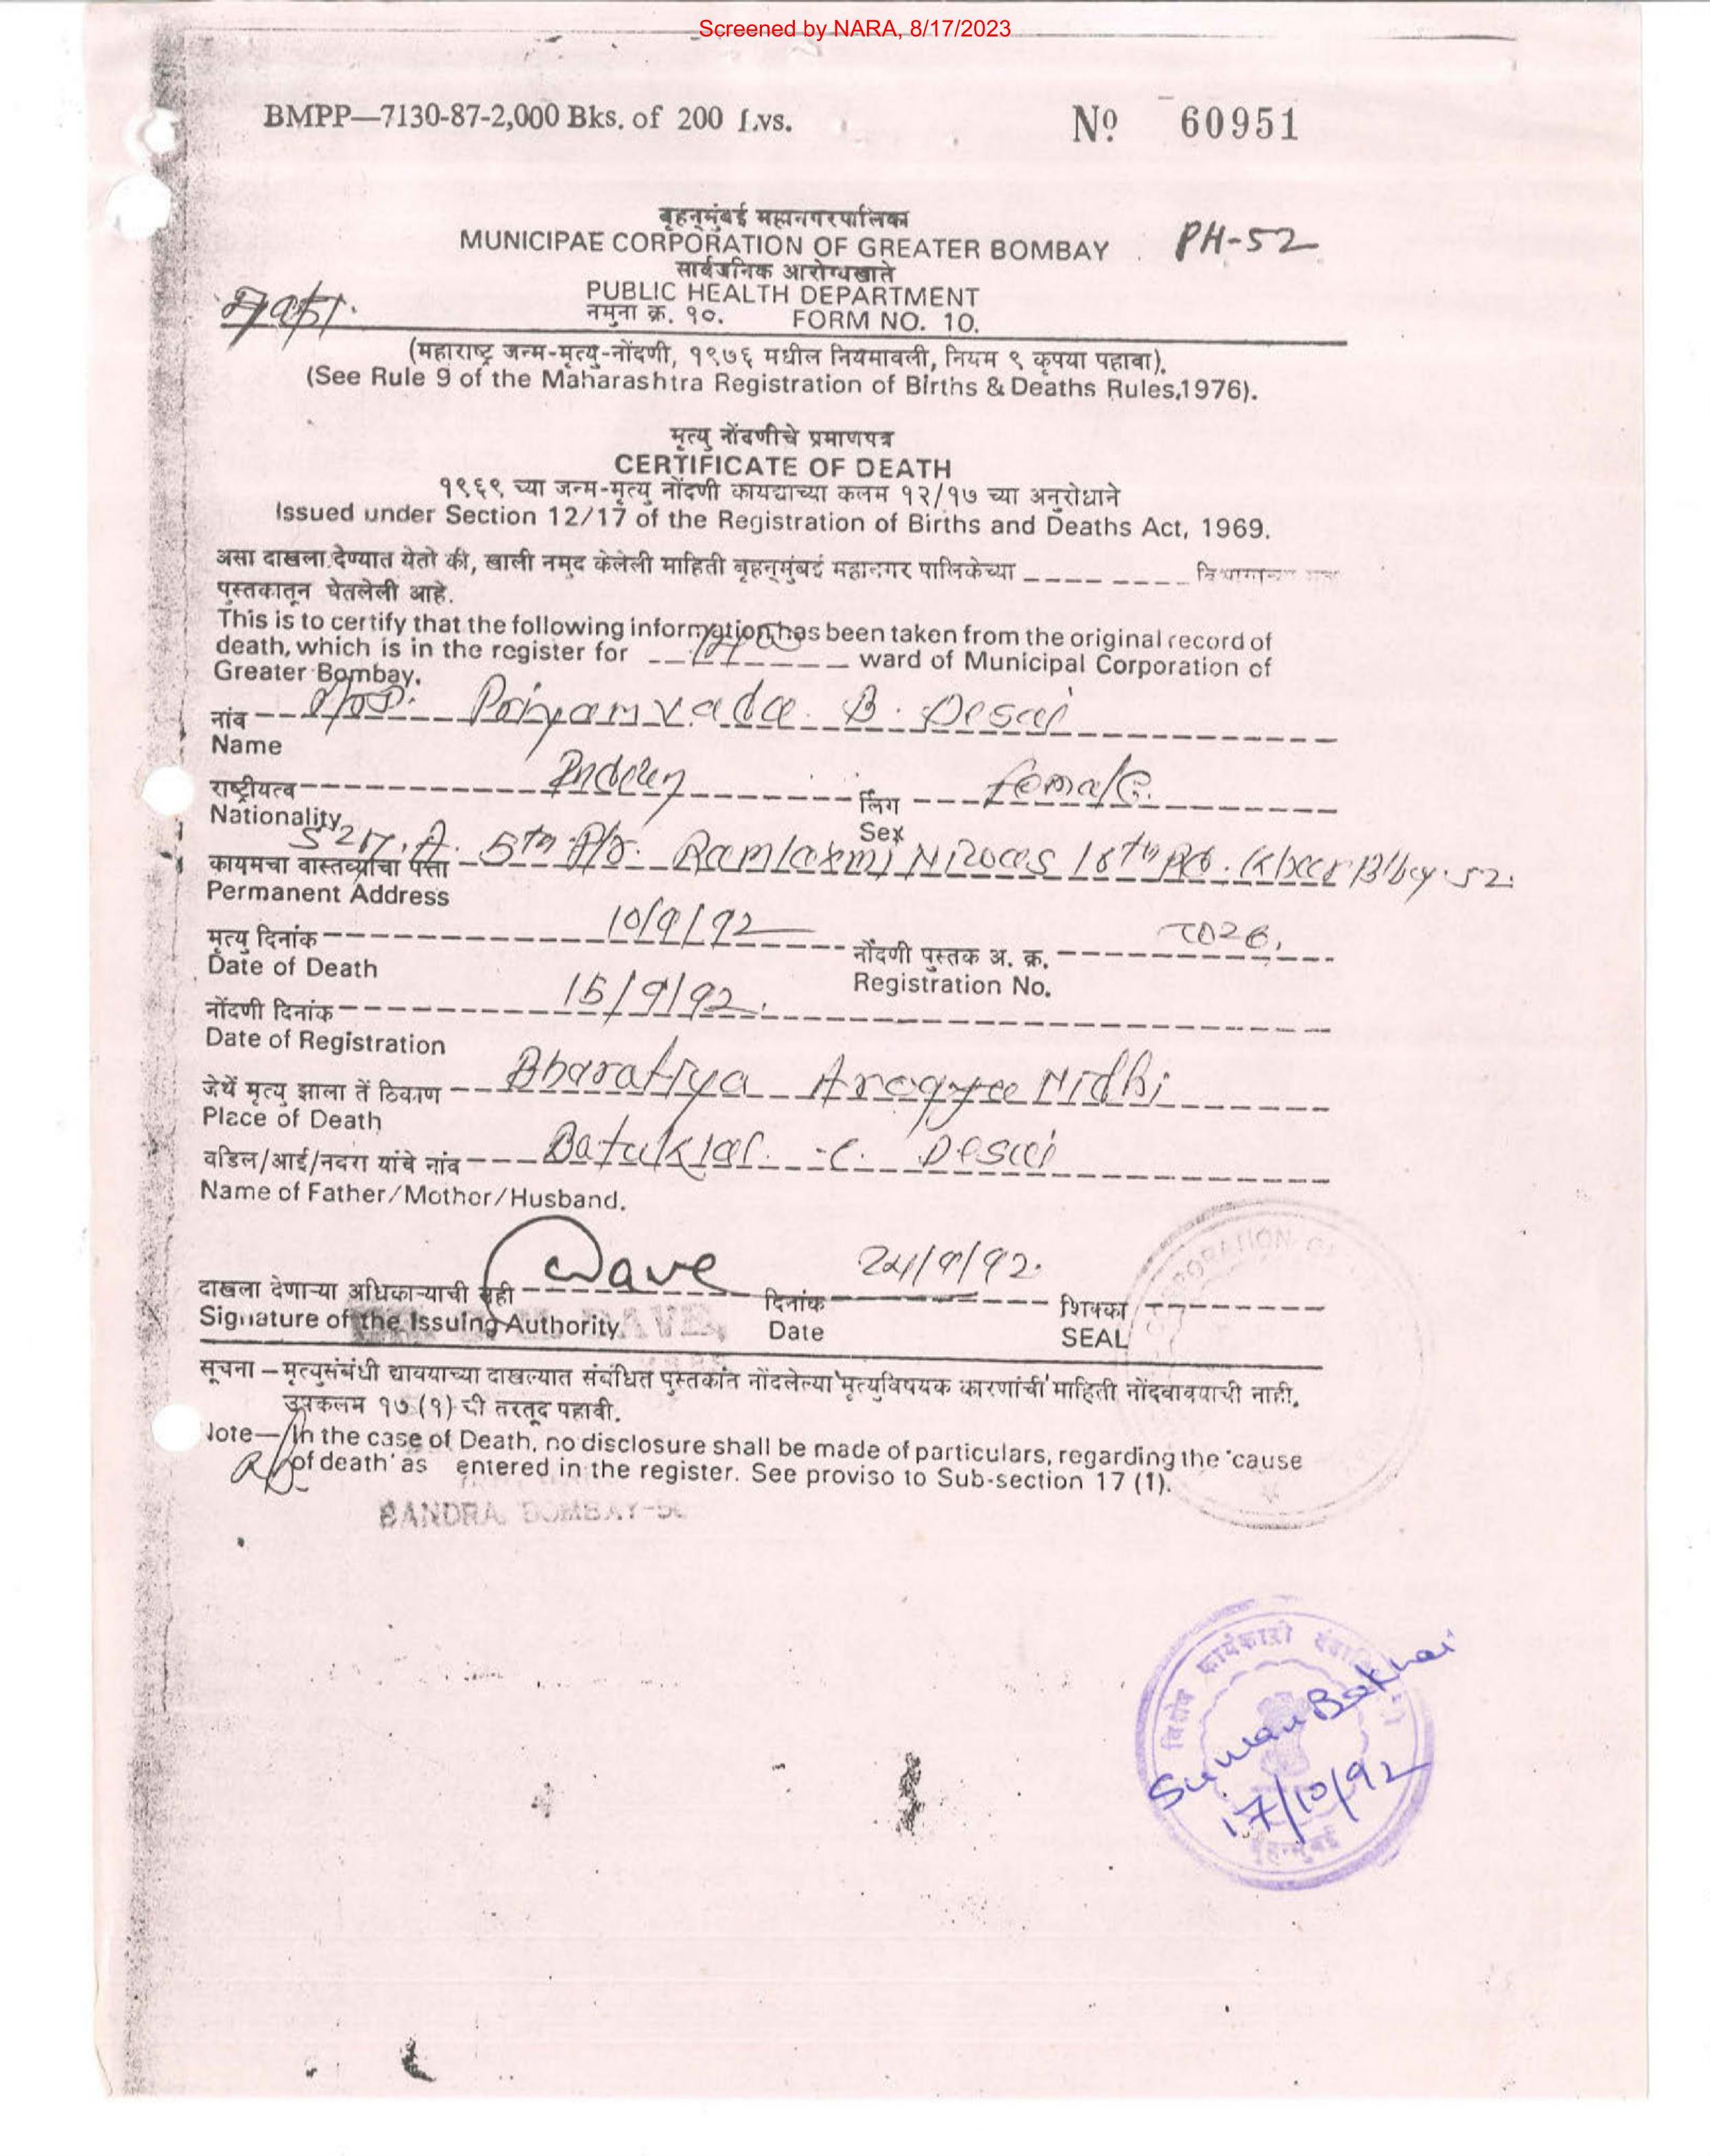 Screened by NARA, 8/17/2023
BMPP—7130-87-2,000 Bks. of 200 Lvs. Nº 60951
बृहन्मुंबई महानगरपालिका
MUNICIPAL CORPORATION OF GREATER BOMBAY PH-52
सार्वजनिक आरोग्यखाते
PUBLIC HEALTH DEPARTMENT
नमुना क्र. १०. FORM NO. 10.
(महाराष्ट्र जन्म-मृत्यु-नोंदणी, १९७६ मधील नियमावली, नियम ९ कृपया पहावा).
(See Rule 9 of the Maharashtra Registration of Births & Deaths Rules,1976).
मृत्यु नोंदणीचे प्रमाणपत्र
CERTIFICATE OF DEATH
१९६९ च्या जन्म-मृत्यु नोंदणी कायद्याच्या कलम १२/१७ च्या अनुरोधाने
Issued under Section 12/17 of the Registration of Births and Deaths Act, 1969.
असा दाखला देण्यात येतो की, खाली नमुद केलेली माहिती बृहन्मुंबई महानगर पालिकेच्या
पुस्तकातून घेतलेली आहे.
This is to certify that the following information has been taken from the original record of
death, which is in the register for ward of Municipal Corporation of
Greater Bombay.
नांव Priyamvada B. Desai
Name
राष्ट्रीयत्व Indian लिंग Female
Nationality Sex
कायमचा वास्तव्याचा पत्ता 5th Ramlaxmi Niwas 16th Rd. Khar B'bay-52.
Permanent Address
मृत्यु दिनांक 10/9/92 नोंदणी पुस्तक अ. क्र.
Date of Death Registration No.
नोंदणी दिनांक 15/9/92.
Date of Registration
जेथें मृत्यु झाला तें ठिकाण Bharatiya Arogya Nidhi
Place of Death
वडिल/आई/नवरा यांचे नांव Batuklal C. Desai
Name of Father/Mother/Husband.
दाखला देणाऱ्या अधिकाऱ्याची सही Dave दिनांक 24/9/92. शिक्का
Signature of the Issuing Authority. Date SEAL
सूचना – मृत्युसंबंधी द्यावयाच्या दाखल्यात संबंधित पुस्तकांत नोंदलेल्या 'मृत्युविषयक कारणांची' माहिती नोंदवावयाची नाही.
उपकलम १७ (१) ची तरतूद पहावी.
Note—In the case of Death, no disclosure shall be made of particulars, regarding the 'cause
of death' as entered in the register. See proviso to Sub-section 17 (1).
BANDRA, BOMBAY-50
विशेष कार्यकारी
Suman Bakhai
17/10/92
बृहन्मुंबई